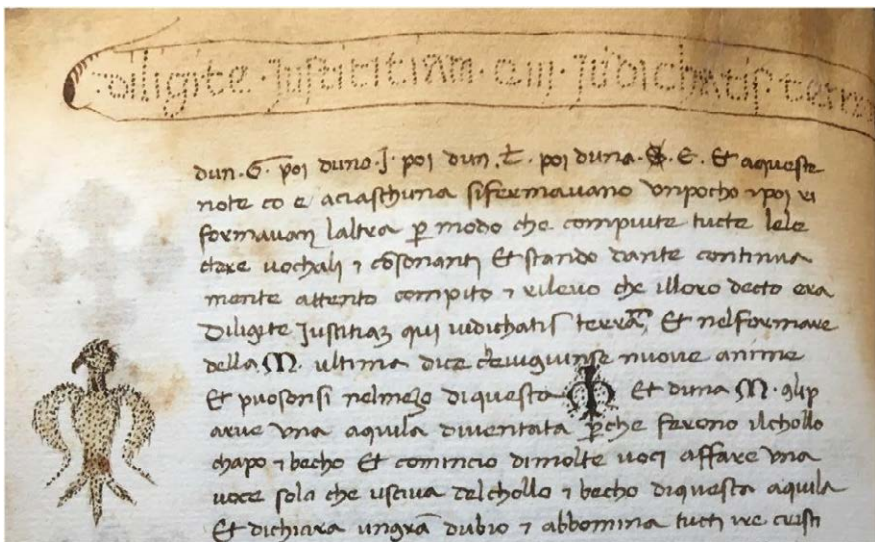 diligite · justititiam · qui · judichatis · terra
dun · G · poi duno · J · poi dun · t · poi duna · E · Et aqueste
note co e aciaschuna sifermavano unpocho ⁊ poi ri
formavan laltra p modo che compiute tucte lele
ctere vochali ⁊ cōsonanti Et stando dante continua
mente attento compito ⁊ rilevo che illoro decto era
Diligite Justitiaȝ qui iudichatis terrā, Et nelformare
della · M · ultima dice nuove anime
Et puosonsi nelmeȝo diquesta M Et duna · M · glip
arve una aquila diventata pche ferono ilchollo
chapo ⁊ becho Et comincio dimolte voci affare una
voce sola che usciva delchollo ⁊ becho diquesta aquila
Et dichiara ungrā dubio ⁊ abbomina tutti